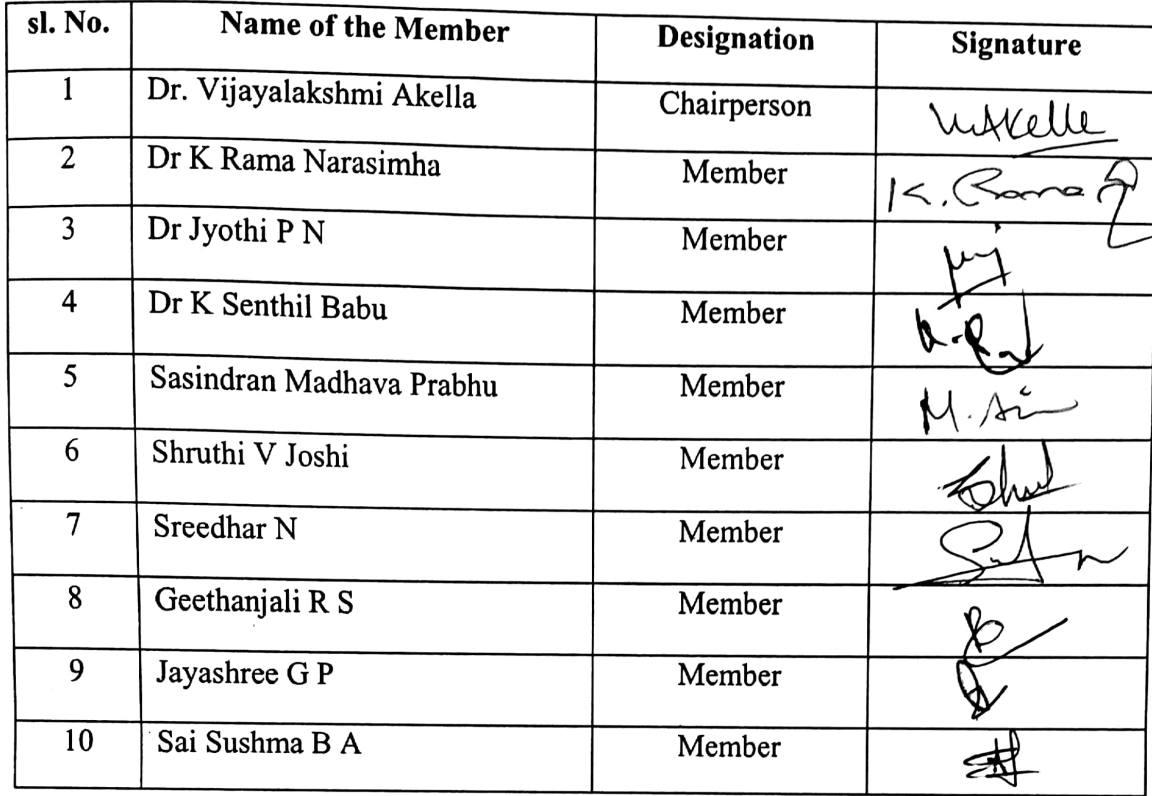 sl. No. Name of the Member Designation Signature
1 Dr. Vijayalakshmi Akella Chairperson
2 Dr K Rama Narasimha Member K. Rama
3 Dr Jyothi P N Member
4 Dr K Senthil Babu Member
5 Sasindran Madhava Prabhu Member
6 Shruthi V Joshi Member
7 Sreedhar N Member
8 Geethanjali R S Member
9 Jayashree G P Member
10 Sai Sushma B A Member